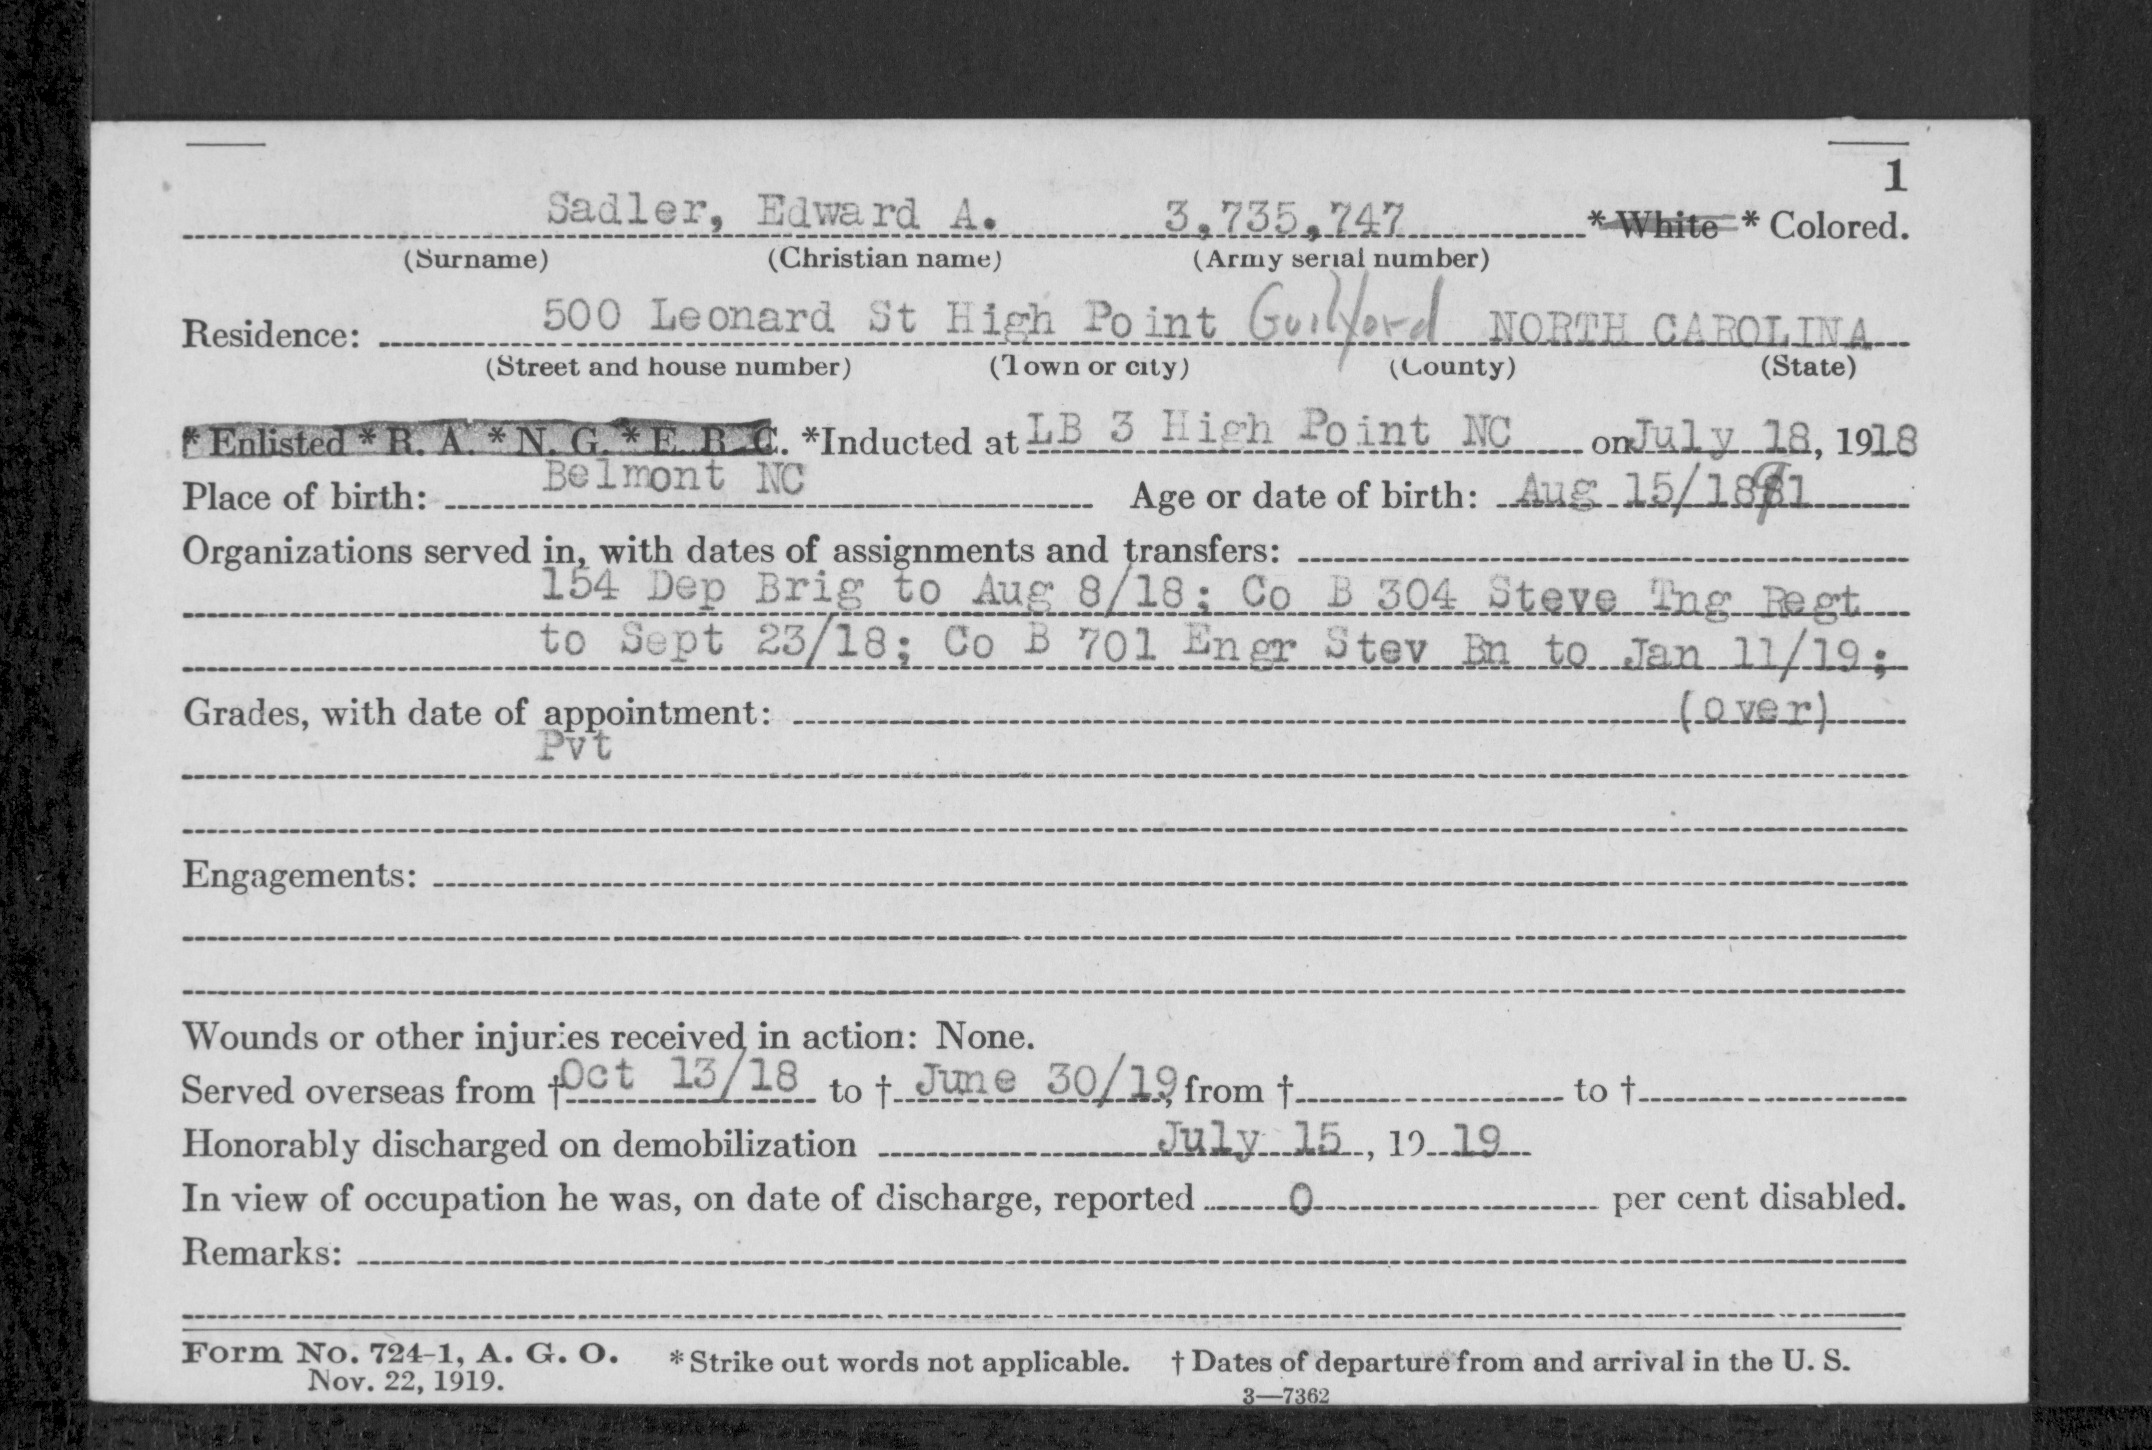 1
Sadler, Edward A. 3,735,747 * White * Colored.
(Surname) (Christian name) (Army serial number)
Residence: 500 Leonard St High Point Guilford NORTH CAROLINA
(Street and house number) (Town or city) (County) (State)
* Enlisted * R. A. * N. G. * E. R. C. *Inducted at LB 3 High Point NC on July 18, 1918
Place of birth: Belmont NC Age or date of birth: Aug 15/1891
Organizations served in, with dates of assignments and transfers:
154 Dep Brig to Aug 8/18; Co B 304 Steve Tng Regt
to Sept 23/18; Co B 701 Engr Stev Bn to Jan 11/19;
Grades, with date of appointment: (over)
Pvt
Engagements:
Wounds or other injuries received in action: None.
Served overseas from † Oct 13/18 to † June 30/19, from † to †
Honorably discharged on demobilization July 15, 19 19
In view of occupation he was, on date of discharge, reported 0 per cent disabled.
Remarks:
Form No. 724-1, A. G. O. * Strike out words not applicable. † Dates of departure from and arrival in the U. S.
Nov. 22, 1919.
3—7362